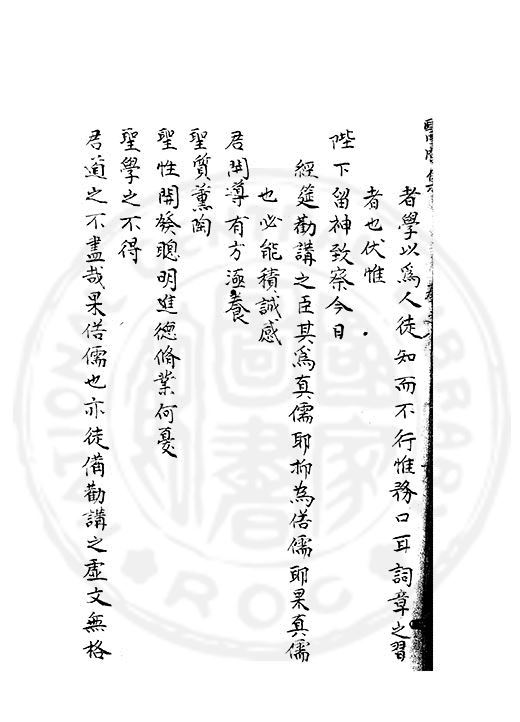 者學以為人徒知而不行惟務口耳詞章之習
者也伏惟
陛下留神致察今日
經筵勸講之臣其為真儒耶抑為偣儒耶果真儒
也必能積誠感
君開導有方涵養
聖質薰陶
聖性開發聰明進德脩業何憂
聖學之不得
君道之不盡哉果偣儒也亦徒備勸講之虛文無格